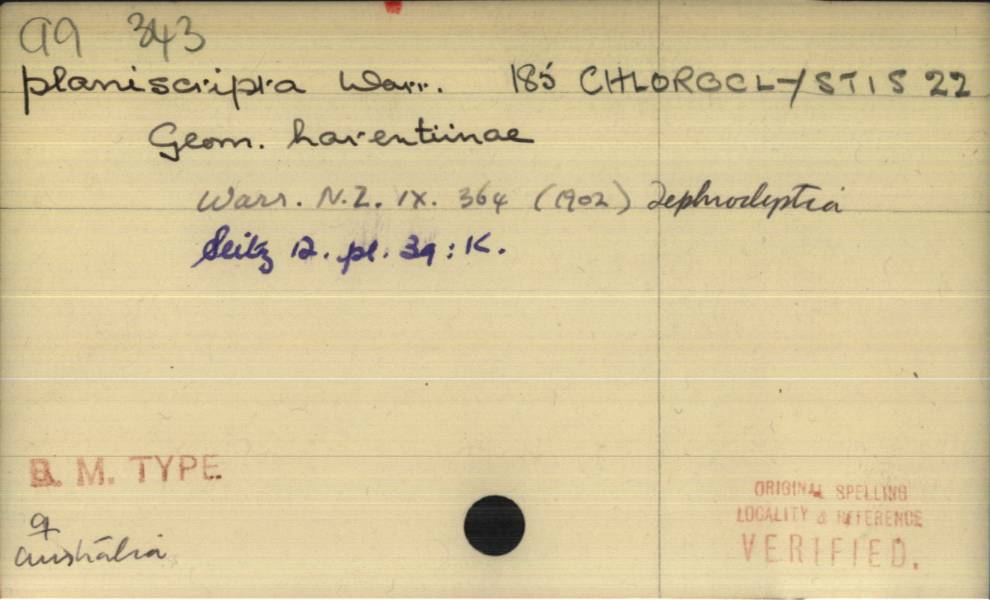 a9 343
planiscripta Warr. 185 CHLOROCLYSTIS 22
Geom. larentiinae
Warr. N.Z. IX. 364 (1902) Tephroclystia
Seitz 12. pl. 39:K.
B. M. TYPE.
♀
Australia
ORIGINAL SPELLING
LOCALITY & REFERENCE
VERIFIED.